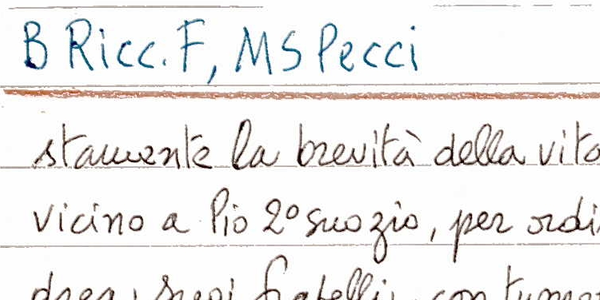 B Ricc. F, MS Pecci
stamente la brevità della vita
vicino a Pio 2º suo zio, per ordi
suoi fratelli, con